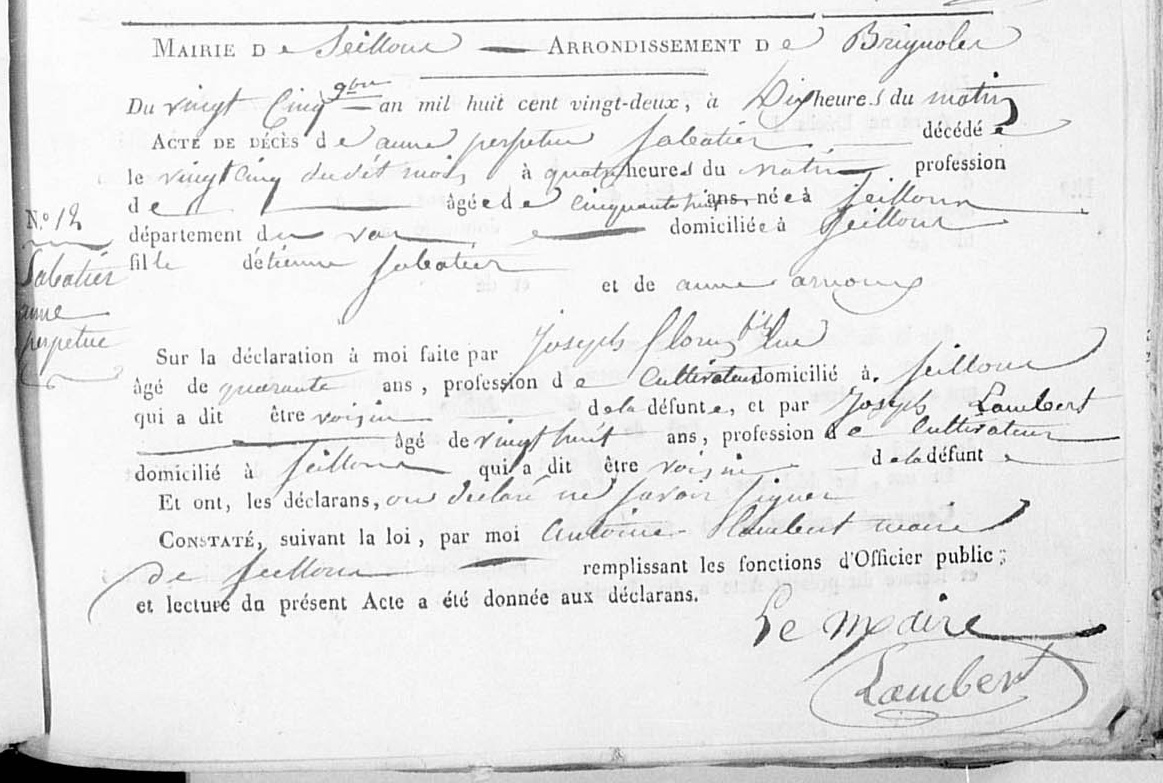 Mairie de Seillons — Arrondissement de Brignoles
Du vingt Cinq 9bre an mil huit cent vingt-deux, à Dix heures du matin
Acte de décès de anne perpetue Sabatier décédée
le vingt Cinq dudit mois, à quatre heures du matin profession
de — âgée de cinquante huit ans, née à Seillons
département du var domiciliée à Seillons
fille détienne Sabatier
et de anne arnoux
N.o 12
Sabatier
anne
perpetue
Sur la déclaration à moi faite par Joseph
âgé de quarante ans, profession de Cultivateur domicilié à Seillons
qui a dit être voisin de la défunte, et par Joseph Lambert
âgé de vingt huit ans, profession de Cultivateur
domicilié à Seillons qui a dit être voisin de la défunte
Et ont, les déclarans, ou déclaré ne savoir signer
Constaté, suivant la loi, par moi Antoine Lambert maire
de Seillons remplissant les fonctions d'Officier public;
et lecture du présent Acte a été donnée aux déclarans.
Le maire
Lambert